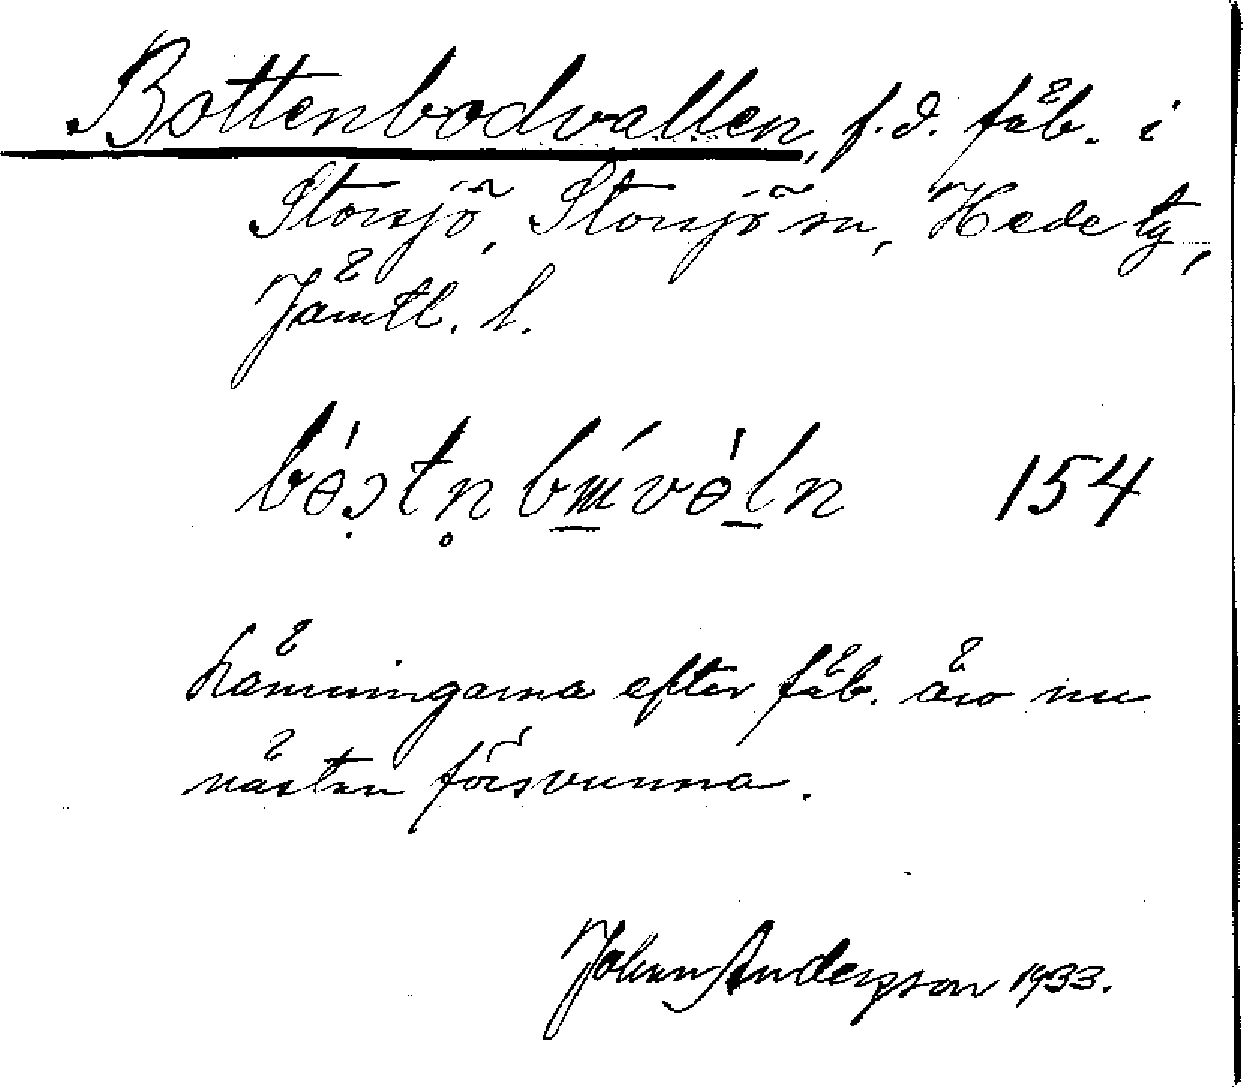 Bottenbodvallen, f.d. fäb. i
Storsjö, Storsjö sn, Hede tg,
Jämtl. l.
154
Lämningarna efter fäb. äro nu
nästan försvunna.
Johan Andersson 1933.